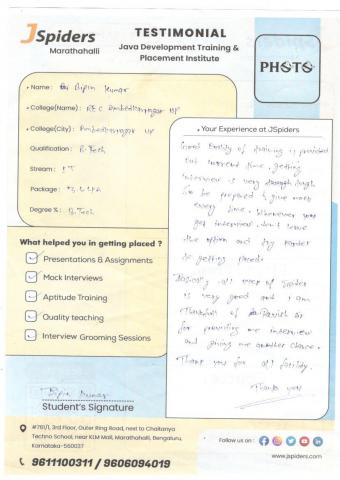 JSpiders
Marathahalli
TESTIMONIAL
Java Development Training &
Placement Institute
PHOTO
Name : Bipin Kumar
College(Name) : REC Ambedkarnagar UP
College(City) : Ambedkarnagar UP
Qualification : B.Tech
Stream : IT
Package : LPA
Degree % : B.Tech
Your Experience at JSpiders
Good Quality of training is provided
but current time, getting
interview is very
be prepared & give mock
every time. Whenever you
get interview, don't leave
the option and try harder
to getting placed.
Basically, all of spider
is very good and I am
Thankful of
for providing me interview
and giving me another chance.
Thank you for all facility.
Thank you
What helped you in getting placed ?
Presentations & Assignments
Mock Interviews
Aptitude Training
Quality teaching
Interview Grooming Sessions
Bipin Kumar
Student's Signature
#781/1, 3rd Floor, Outer Ring Road, next to Chaitanya
Techno School, near KLM Mall, Marathahalli, Bengaluru,
Karnataka-560037
9611100311 / 9606094019
Follow us on :
www.jspiders.com